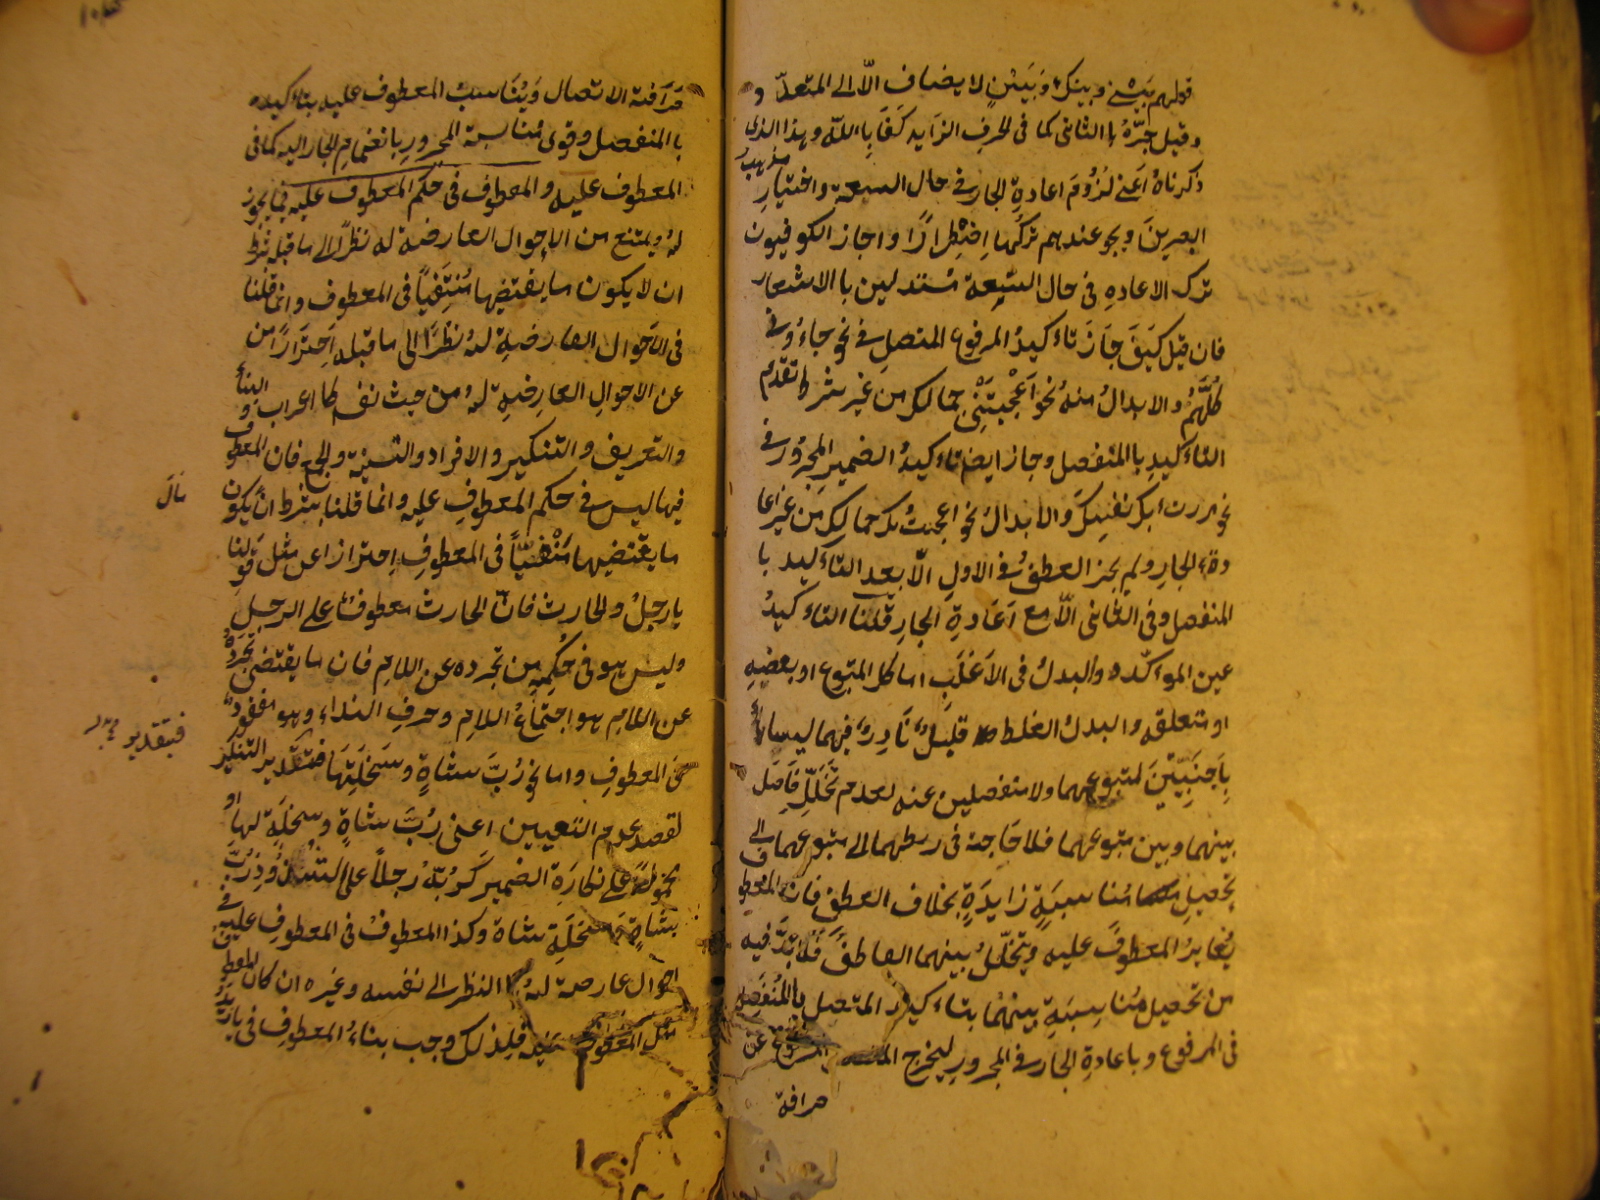 قولهم بيني وبينك وبين لا يضاف الا الى المتعدد و
وقيل جره بالثانى كما فى الحرف الزايد كفا بالله وهذا الذى
ذكرناه اعنى لزوم اعادة الجار فى حال السعة واختيار مذهب
البصرين ويجوز عندهم تركها اضطرارا واجاز الكوفيون
ترك الاعاده فى حال السعة مستدلين بالاشعار
فان قيل كيف جاز تاءكيد المرفوع المتصل فى نحو جاءوفى
كلهم والابدال منه نحو اعجبتنى جمالك من غير شرط تقدم
التاءكيد بالمنفصل وجاز ايضا تاءكيد الضمير المجرور فى
نحو مررت بك نفسك والابدال نحو اعجبت بك جمالك من غير اعا
دة الجار ولم يجز العطف فى الاول الا بعد التاءكيد با
المنفصل وفى الثانى الا مع اعادة الجار قلنا التاءكيد
عين الموءكده والبدل فى الاغلب اما كل المتبوع او بعضه
او متعلقه والبدل الغلط قليل نادر فهما ليسا
باجنبيين لمتبوعهما ولا منفصلين عنه لعدم تخلل فاصل
بينهما وبين متبوعهما فلا حاجة فى ربطهما الى متبوعهما الى
تحصيل مناسبة زايدة بخلاف العطف فان المعطوف
يغاير المعطوف عليه ويتخلل بينهما العاطف فلا بد فيه
من تحصيل مناسبة بينهما بتاءكيد المتصل بالمنفصل
فى المرفوع وباعادة الجار فى المجرور ليخرج عن
صرافة
صرافة الاتصال ويناسب المعطوف عليه بتاءكيده
بالمنفصل وقوى مناسبة المجرور بانضمام الجار اليه كما فى
المعطوف عليه والمعطوف فى حكم المعطوف عليه فيما يجوز
له ويمتنع من الاحوال العارضة له نظرا الى ما قبله بشرط
ان لا يكون ما يقتضيها منتفيا فى المعطوف وانما قلنا
فى الاحوال العارضة له نظرا الى ما قبله احترازا من
عن الاحوال العارضة له من حيث نفسه كا اعراب والبناء
والتعريف والتنكير والافراد والتثنية والجمع فان المعطوف
فيها ليس فى حكم المعطوف عليه وانما قلنا بشرط ان يكون
ما يقتضيها منتفيا فى المعطوف احترازا عن مثل قولنا
يا رجل والحارث فان الحارث معطوف على الرجل
وليس هو فى حكمه من تجرده عن اللام فان ما يقتضى تجرده
عن اللام هو اجتماع اللام وحرف النداء وهو مفقود
فى المعطوف واما نحو رب شاة وسخلتها فبتقدير التنكير
لقصد عدم التعيين اعنى رب شاة وسخلة لها او
على نكارة الضمير كربه رجلا على الشذوذ رب
شاة سخلة شاة وكذا المعطوف فى المعطوف عليه فى
احوال عارضة له النظر الى نفسه وغيره ان كان المعطوف
مثل المعطوف عليه فلذلك وجب بناء المعطوف فى يا زيد
فبتقدير